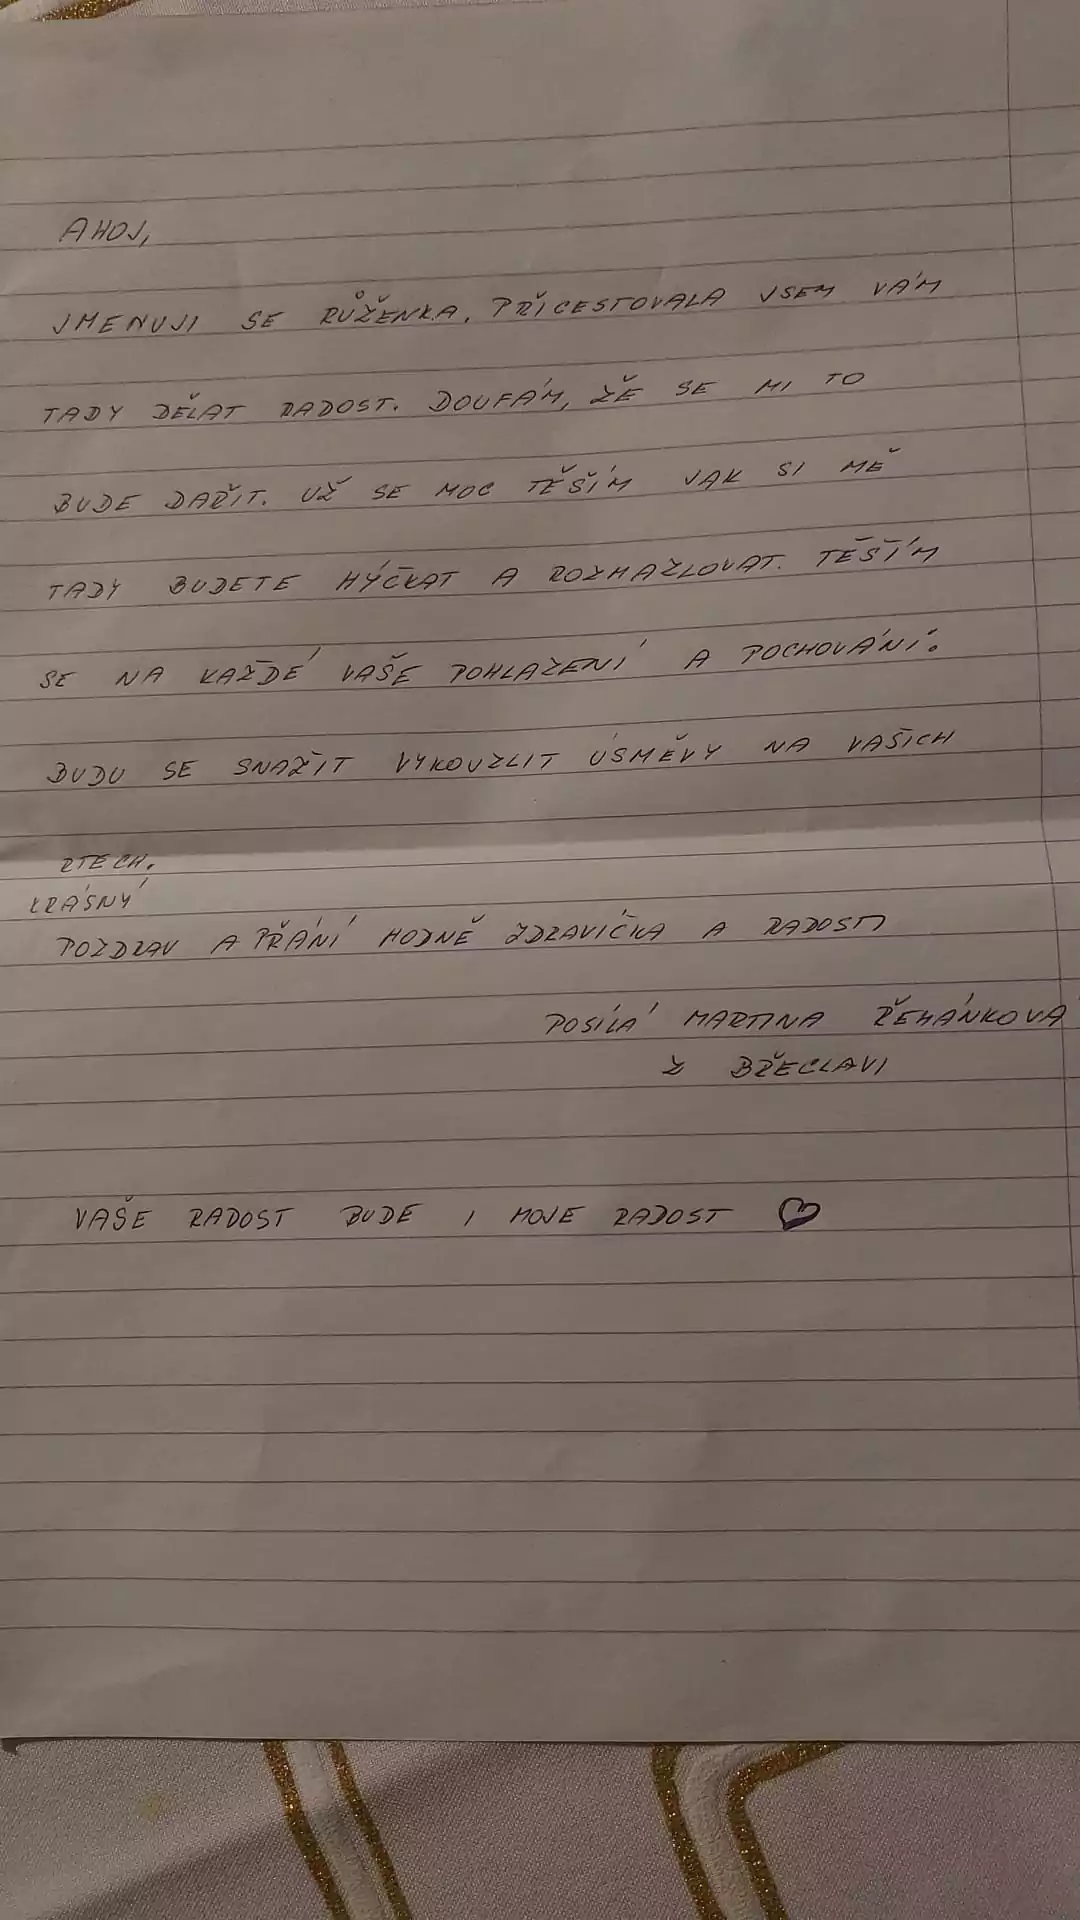 AHOJ,
JMENUJI SE RŮŽENKA. PŘICESTOVALA JSEM VÁM
TADY DĚLAT RADOST. DOUFÁM, ŽE SE MI TO
BUDE DAŘIT. UŽ SE MOC TĚŠÍM JAK SI MĚ
TADY BUDETE HÝČKAT A ROZMAZLOVAT. TĚŠÍM
SE NA KAŽDÉ VAŠE POHLAZENÍ A POCHOVÁNÍ.
BUDU SE SNAŽIT VYKOUZLIT ÚSMĚVY NA VAŠICH
RTECH.
KRÁSNÝ
POZDRAV A PŘÁNÍ HODNĚ ZDRAVÍČKA A RADOSTI
POSÍLÁ MARTINA ŘEHÁNKOVÁ
Z BŘECLAVI
VAŠE RADOST BUDE I MOJE RADOST